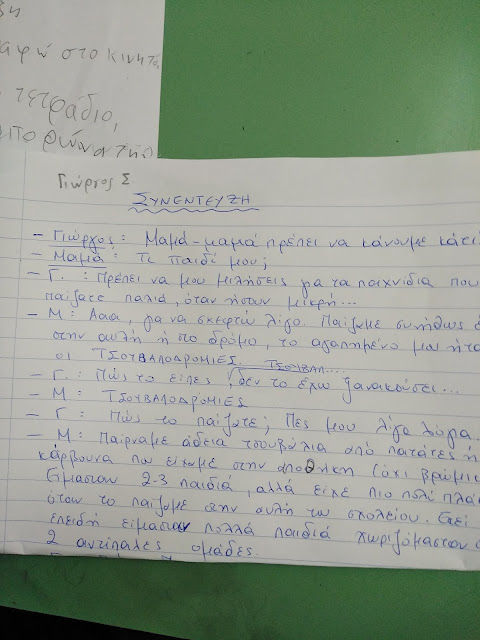 αφώ στο κινητό
τετράδιο,
Γιώργος Σ
ΣΥΝΕΝΤΕΥΞΗ
- Γιώργος: Μαμά-μαμά πρέπει να κάνουμε κάτι
- Μαμά: Τι παιδί μου;
- Γ. : Πρέπει να μου μιλήσεις για τα παιχνίδια που
παίζατε παλιά, όταν ήσουν μικρή...
- Μ: Ααα, για να σκεφτώ λίγο. Παίζαμε συνήθως
στην αυλή ή το δρόμο, το αγαπημένο μου ήτα
οι ΤΣΟΥΒΑΛΟΔΡΟΜΙΕΣ.
- Γ. : Πώς το είπες; ΤΣΟΥΒΑΛ.... δεν το έχω ξανακούσει...
- Μ : ΤΣΟΥΒΑΛΟΔΡΟΜΙΕΣ
- Γ : Πώς το παίζατε; Πες μου λίγα λόγια.
- Μ: Παίρναμε άδεια τσουβάλια από πατάτες ή
κάρβουνα που είχαμε στην αποθήκη (όχι βρώμι
Είμασταν 2-3 παιδιά, αλλά είχε πιο πολύ πλά
όταν το παίζαμε στην αυλή του σχολείου. Εκεί
επειδή είμασταν πολλά παιδιά χωριζόμασταν σ
2 αντίπαλες ομάδες.